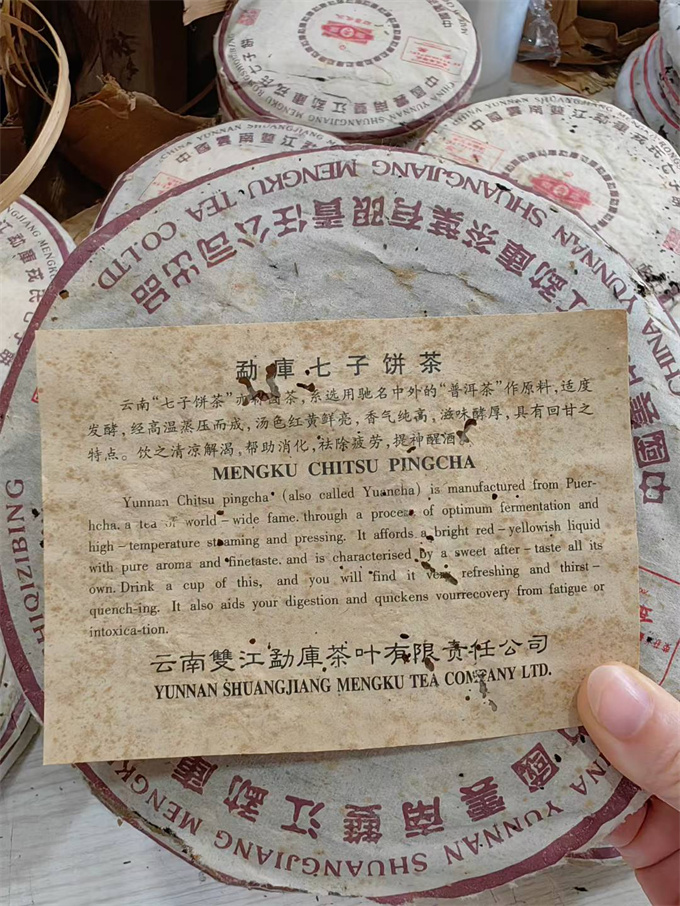 勐庫七子饼茶
云南“七子饼茶”亦称圆茶,系选用驰名中外的“普洱茶”作原料,适度
发酵,经高温蒸压而成,汤色红黄鲜亮,香气纯高,滋味醇厚,具有回甘之
特点。饮之清凉解渴,帮助消化,祛除疲劳,提神醒酒。
MENGKU CHITSU PINGCHA
Yunnan Chitsu pingcha (also called Yuancha) is manufactured from Puer-
hcha. a tea of world-wide fame. through a process of optimum fermentation and
high-temperature steaming and pressing. It affords a bright red-yellowish liquid
with pure aroma and finetaste. and is characterised by a sweet after-taste all its
own. Drink a cup of this, and you will find it very refreshing and thirst-
quench-ing. It also aids your digestion and quickens vourrecovery from fatigue or
intoxica-tion.
云南雙江勐庫茶叶有限责任公司
YUNNAN SHUANGJIANG MENGKU TEA COMPANY LTD.
CHINA YUNNAN SHUANGJIANG MENGKU TEA CO.LTD.
勐庫茶葉有限責任公司出品
中國雲南雙江勐庫
CHINA YUNNAN SHUANGJIANG MENGK
HIQIZIBING
中國雲南雙江勐庫戎氏七子餅
CHINA YUNNAN SHUANGJIANG MENGKU